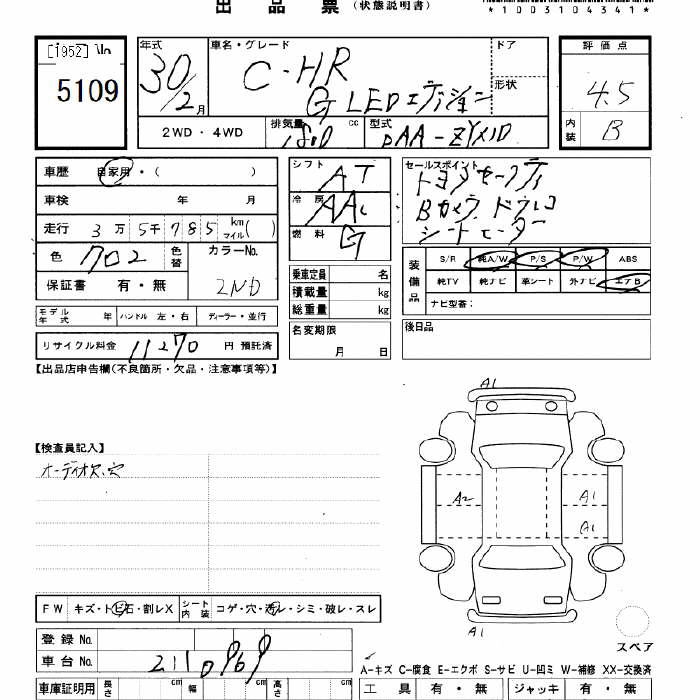 出品票 (状態説明書)
*1003104341*
[1952] No
5109
年式 30/2月
車名・グレード C-HR
G LEDエディション
ドア
形状
評価点 4.5
内装 B
2WD・4WD
排気量 1800 cc
型式 DAA-ZYX10
車歴 自家用・( )
車検 年 月
走行 3万5千785 km マイル( )
色 クロ202 色替
カラーNo. 2ND
保証書 有・無
モデル年式 年 ハンドル 左・右 ディーラー・並行
リサイクル料金 11270 円 預託済
シフト AT
冷房 AAC
燃料 G
乗車定員 名
積載量 kg
総重量 kg
名変期限
月 日
セールスポイント
トヨタセーフティ
Bカメラ ドラレコ
シートヒーター
装備品 S/R 純A/W P/S P/W ABS
純TV 純ナビ 革シート 外ナビ エアB
ナビ型番:
後日品
【出品店申告欄(不良箇所・欠品・注意事項等)】
【検査員記入】
オーディオス、穴
A1
A2 A1
A1
A1
スペア
FW キズ・トビ石・割レX シート内装 コゲ・穴・汚レ・シミ・破レ・スレ
登録No.
車台No. 2110969
車庫証明用 長さ cm 幅 cm 高さ cm
A-キズ C-腐食 E-エクボ S-サビ U-凹ミ W-補修 XX-交換済
工具 有・無 ジャッキ 有・無